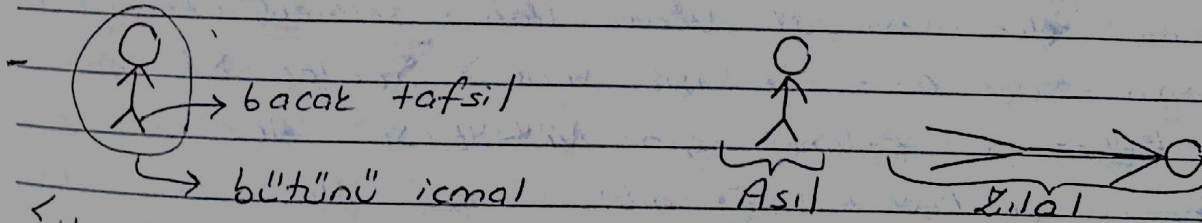 bacak tafsil
bütünü icmal
Asıl
Zılal